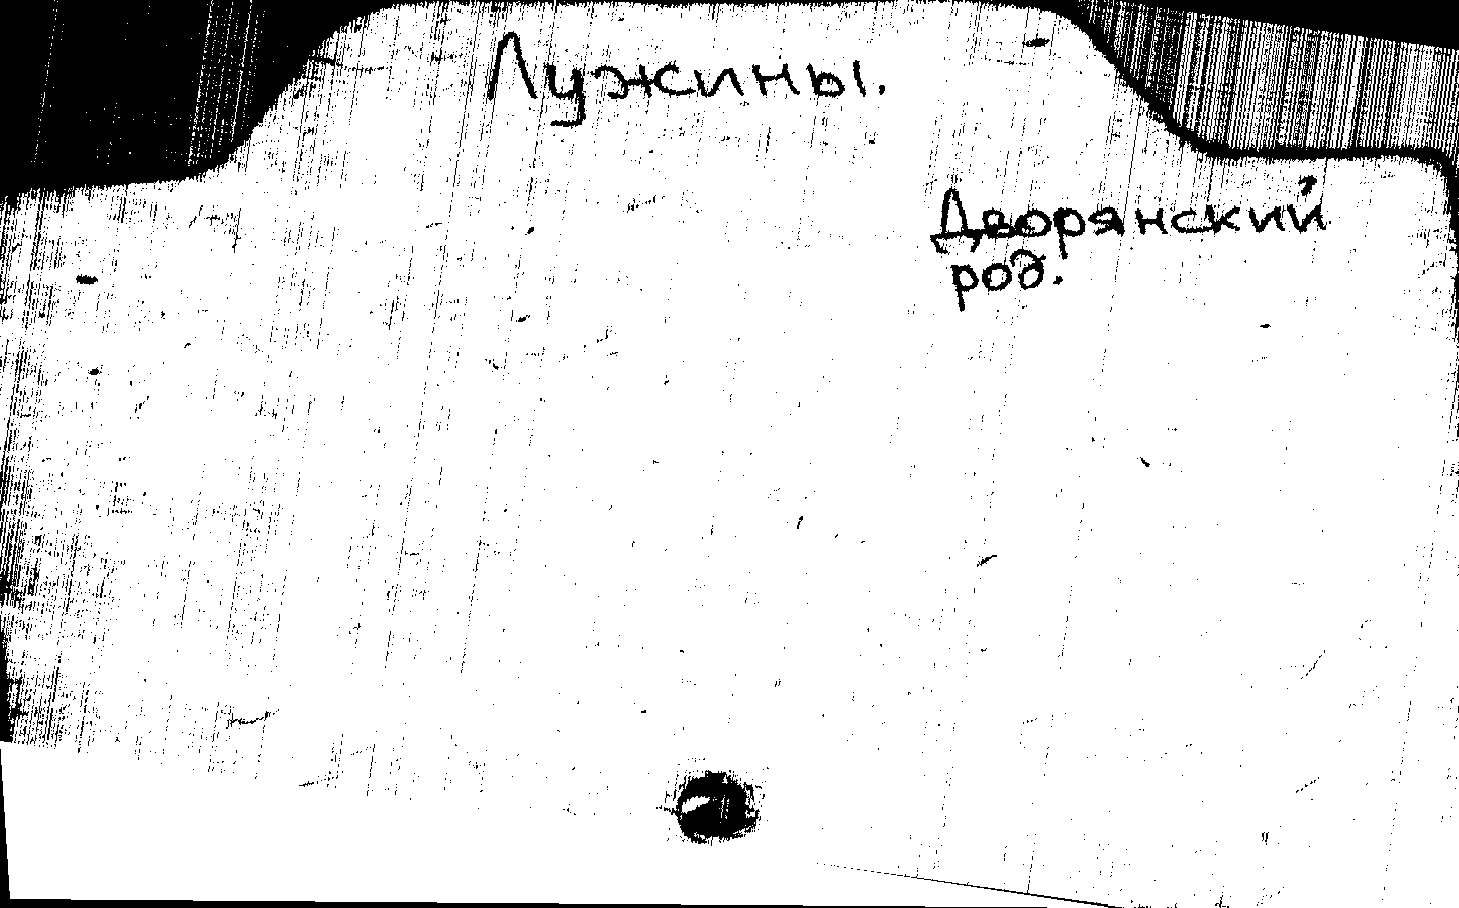 Лужины.
Дворянский
род.